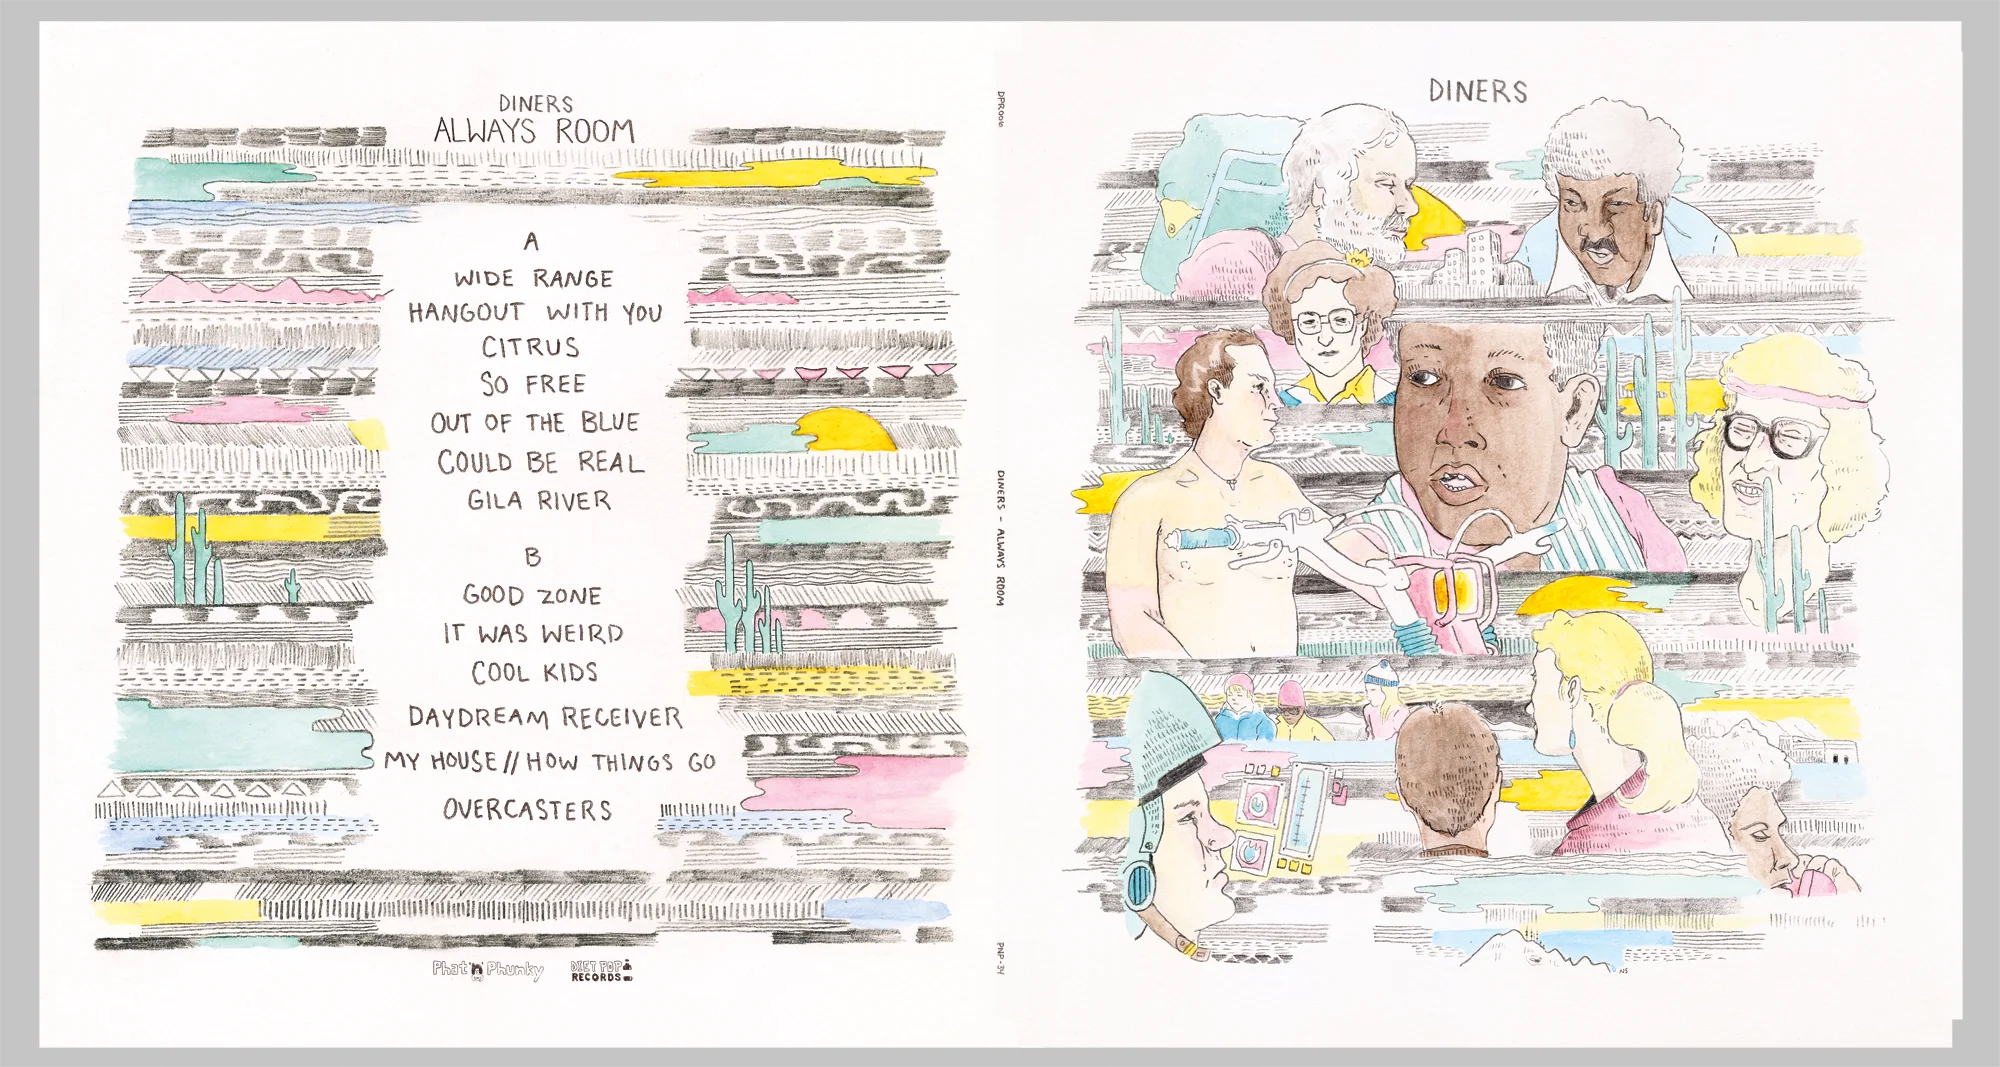 DINERS
ALWAYS ROOM
A
WIDE RANGE
HANGOUT WITH YOU
CITRUS
SO FREE
OUT OF THE BLUE
COULD BE REAL
GILA RIVER
B
GOOD ZONE
IT WAS WEIRD
COOL KIDS
DAYDREAM RECEIVER
MY HOUSE//HOW THINGS GO
OVERCASTERS
Phat'n Phunky
DIET POP
RECORDS
DPR006
DINERS - ALWAYS ROOM
PNP-34
DINERS
NS